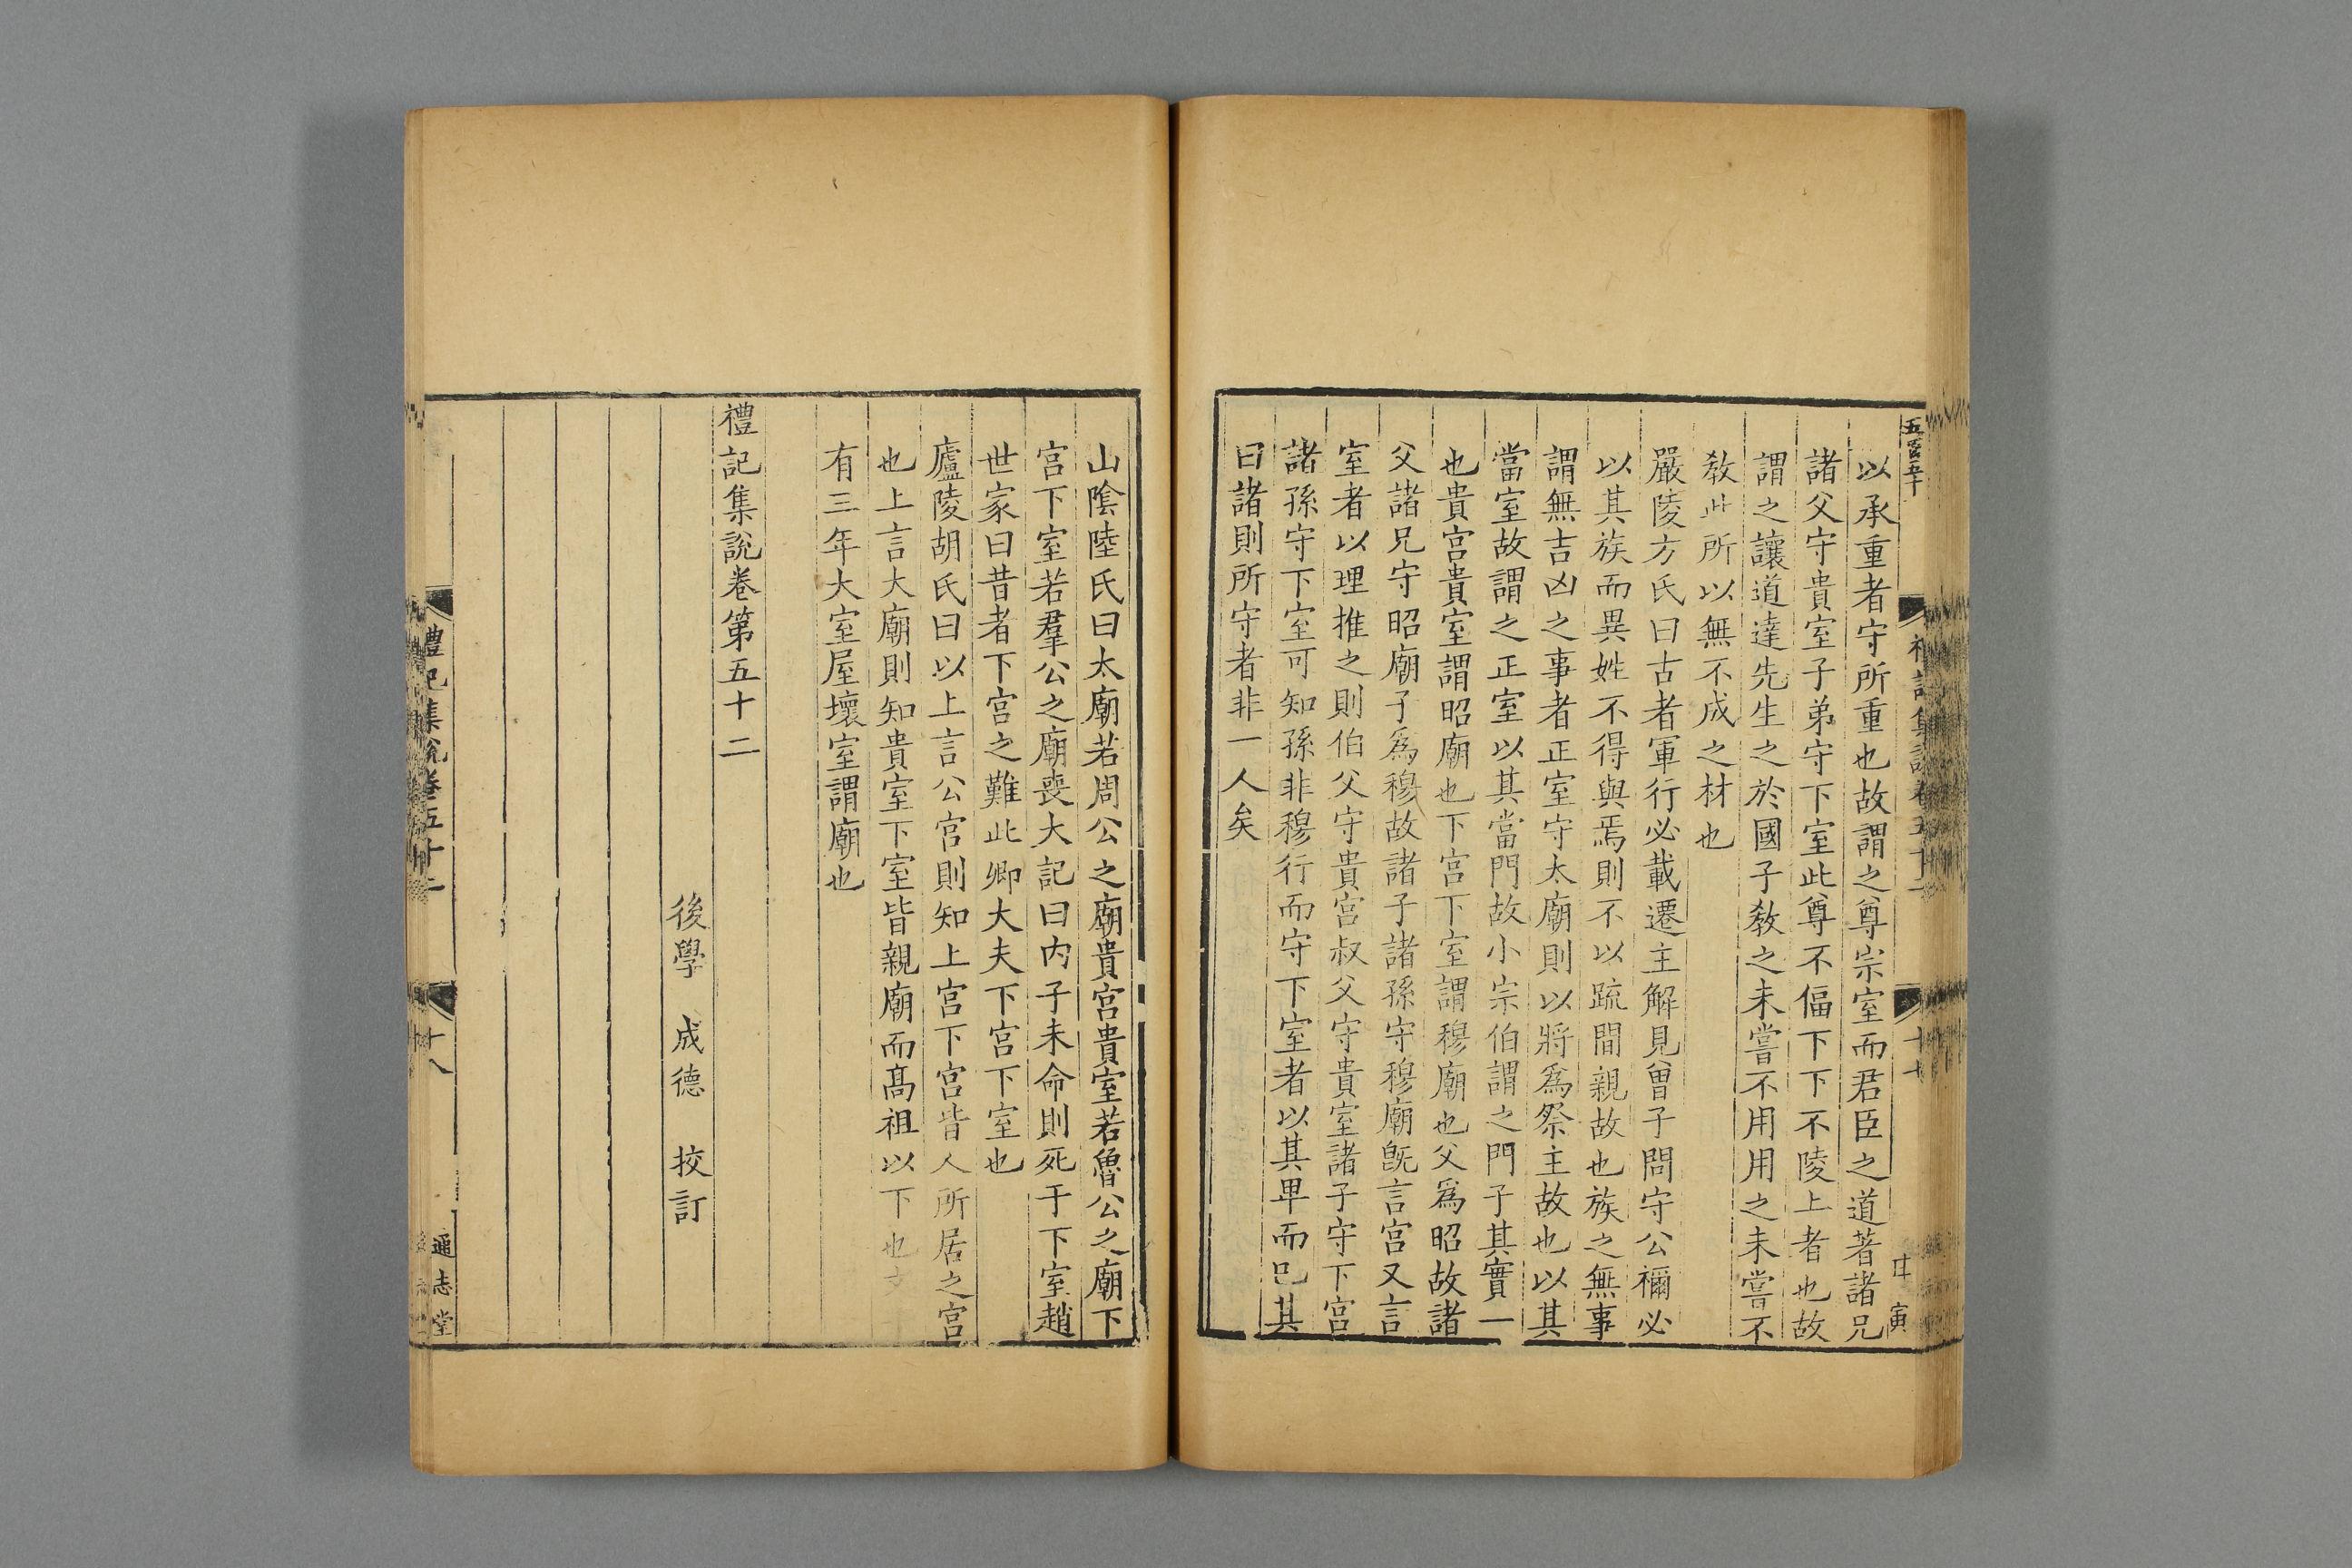 五百五十
禮記集說卷五十二
十七
甘寅
以承重者守所重也故謂之尊宗室而君臣之道著諸兄
諸父守貴室子弟守下室此尊不偪下下不陵上者也故
謂之讓道達先生之於國子教之未嘗不用用之未嘗不
教此所以無不成之材也
嚴陵方氏曰古者軍行必載遷主解見曾子問守公禰必
以其族而異姓不得與焉則不以疏間親故也族之無事
謂無吉凶之事者正室守太廟則以將爲祭主故也以其
當室故謂之正室以其當門故小宗伯謂之門子其實一
也貴宮貴室謂昭廟也下宮下室謂穆廟也父爲昭故諸
父諸兄守昭廟子爲穆故諸子諸孫守穆廟旣言宮又言
室者以理推之則伯父守貴宮叔父守貴室諸子守下宮
諸孫守下室可知孫非穆行而守下室者以其畢而已其
曰諸則所守者非一人矣
山陰陸氏曰太廟若周公之廟貴宮貴室若魯公之廟下
宮下室若羣公之廟喪大記曰內子未命則死于下室趙
世家曰昔者下宮之難此卿大夫下宮下室也
廬陵胡氏曰以上言公宮則知上宮下宮皆人所居之宮
也上言大廟則知貴室下室皆親廟而髙祖以下也
有三年大室屋壞室謂廟也
禮記集說卷第五十二
後學 成德 挍訂
禮記集說卷五十二
十八
通志堂